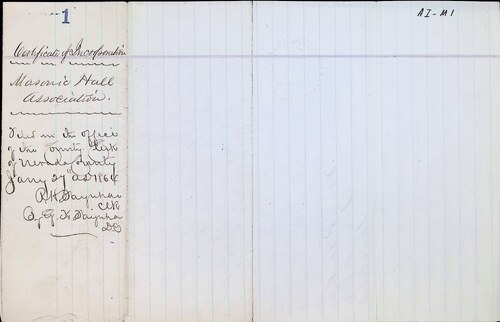 1
AI-M1
Certificate of Incorporation
Masonic Hall
Association.
Filed in the office
of the County Clerk
of Nevada County
Jany 27th AD 1864
R H
Clk
By